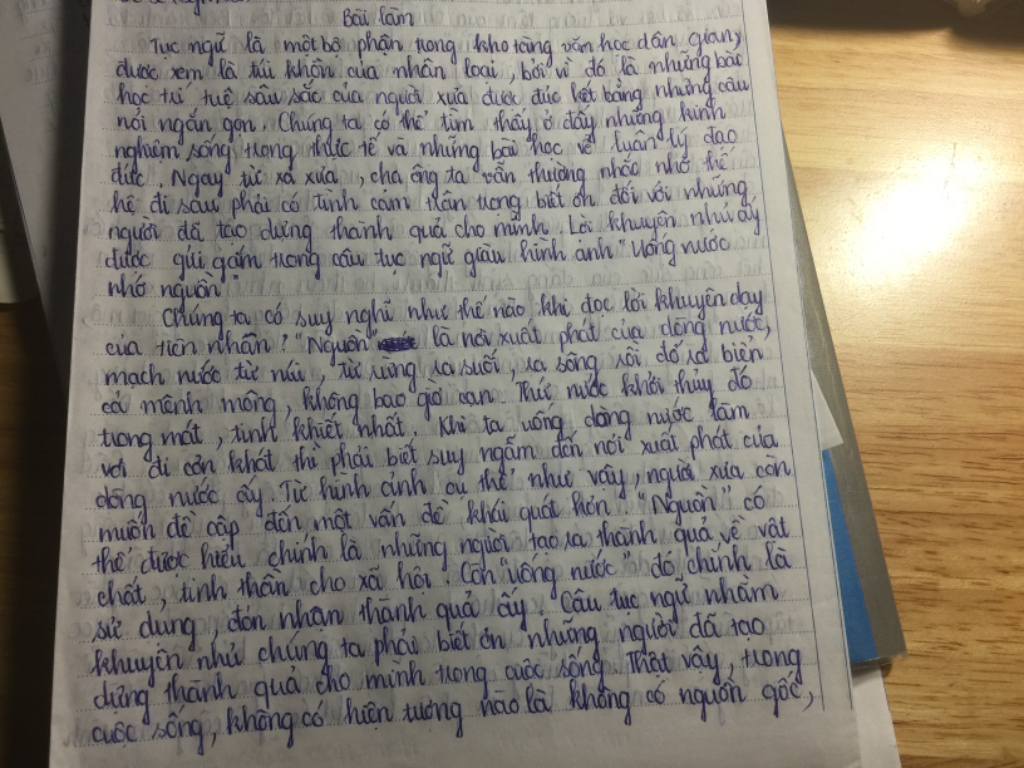 Bài làm
Tục ngữ là một bộ phận trong kho tàng văn học dân gian,
được xem là túi khôn của nhân loại, bởi vì đó là những bài
học trí tuệ sâu sắc của người xưa được đúc kết bằng những câu
nói ngắn gọn. Chúng ta có thể tìm thấy ở đấy những kinh
nghiệm sống trong thực tế và những bài học về luân lý đạo
đức. Ngay từ xa xưa, cha ông ta vẫn thường nhắc nhở thế
hệ đi sau phải có tình cảm trân trọng biết ơn đối với những
người đã tạo dựng thành quả cho mình. Lời khuyên nhủ ấy
được gửi gắm trong câu tục ngữ giàu hình ảnh "Uống nước
nhớ nguồn"
Chúng ta có suy nghĩ như thế nào khi đọc lời khuyên dạy
của tiền nhân? "Nguồn" là nơi xuất phát của dòng nước,
mạch nước từ núi, từ rừng ra suối, ra sông rồi đổ ra biển
cả mênh mông, không bao giờ cạn. Thứ nước khởi thủy đó
trong mát, tinh khiết nhất. Khi ta uống dòng nước làm
vơi đi cơn khát thì phải biết suy ngẫm đến nơi xuất phát của
dòng nước ấy. Từ hình ảnh cụ thể như vậy, người xưa còn
muốn đề cập đến một vấn đề khái quát hơn. "Nguồn" có
thể được hiểu chính là những người tạo ra thành quả về vật
chất, tinh thần cho xã hội. Còn "uống nước" đó chính là
sử dụng, đón nhận thành quả ấy. Câu tục ngữ nhằm
khuyên nhủ chúng ta phải biết ơn những người đã tạo
dựng thành quả cho mình trong cuộc sống. Thật vậy, trong
cuộc sống, không có hiện tượng nào là không có nguồn gốc,